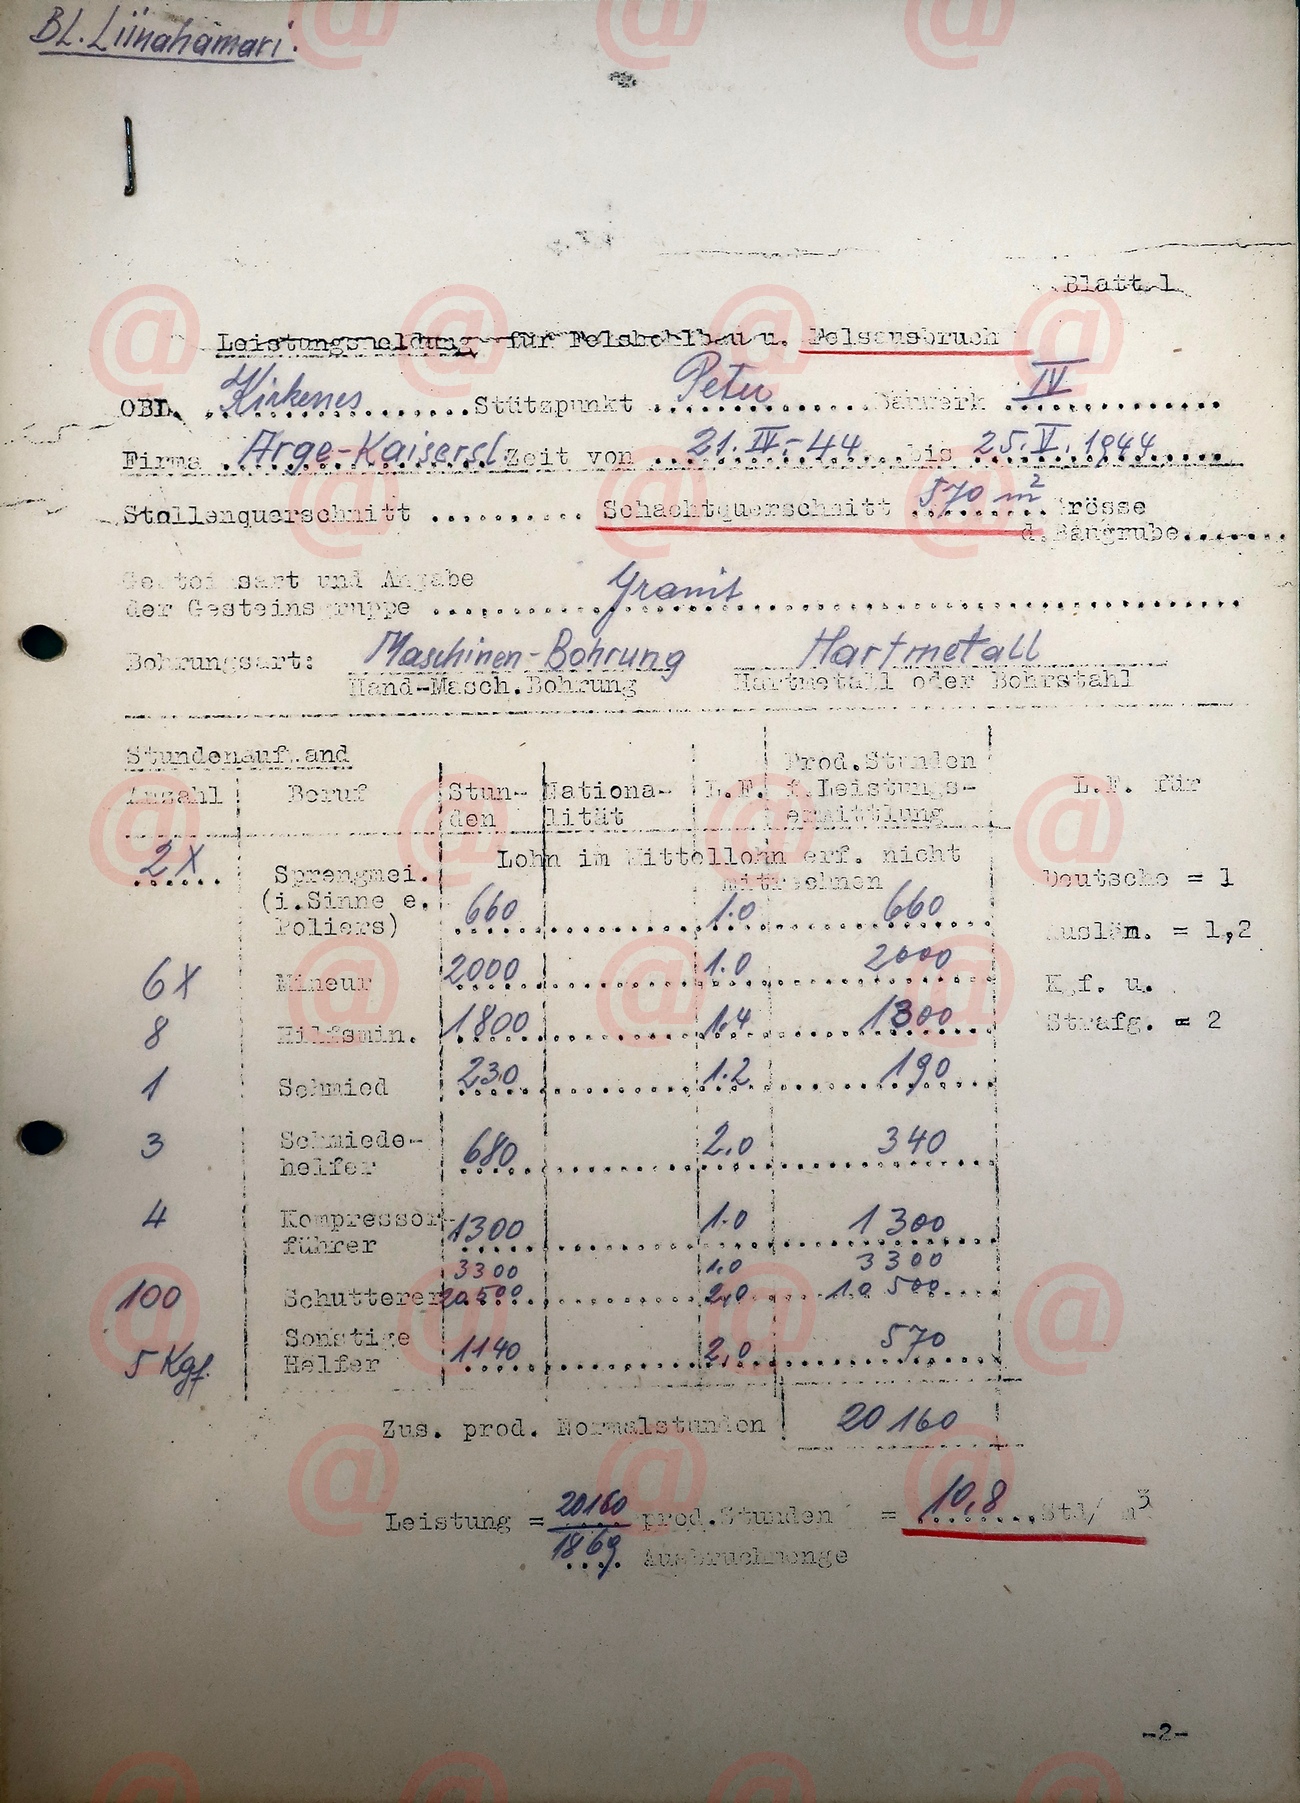 BL. Liinahamari.
Blatt 1
Leistungsmeldung für Felshohlbau u. Felsausbruch
OBL Kirkenes Stützpunkt Peter Bauwerk IV
Firma Arge-Kaisersl. Zeit von 21.IV.-44 bis 25.V.1944
Stollenquerschnitt .......... Schachtquerschnitt 570 m² Grösse
d.Baugrube.......
Gesteinsart und Angabe
der Gesteinsgruppe Granit
Bohrungsart: Maschinen-Bohrung Hartmetall
Hand-Masch.Bohrung Hartmetall oder Bohrstahl
Stundenaufwand
Anzahl Beruf Stun-den Nationa-lität L.F. Prod.Stunden f.Leistungs-ermittlung L.F. für
Lohn im Mittellohn erf. nicht
mitrechnen
2X Sprengmei. Deutsche = 1
(i.Sinne e. 660 1.0 660
Poliers) Auslän. = 1,2
6X Mineur 2000 1.0 2000 K.f. u.
8 Hilfsmin. 1800 1.4 1300 Strafg. = 2
1 Schmied 230 1.2 190
3 Schmiede-
helfer 680 2.0 340
4 Kompressor-
führer 1300 1.0 1300
3300 1.0 3300
100 Schutterer 20500 2,0 10 500
Sonstige
5 Kgf. Helfer 1140 2,0 570
Zus. prod. Normalstunden 20 160
Leistung = 20160 prod.Stunden = 10,8 Std/ m³
1869 Ausbruchmenge
-2-